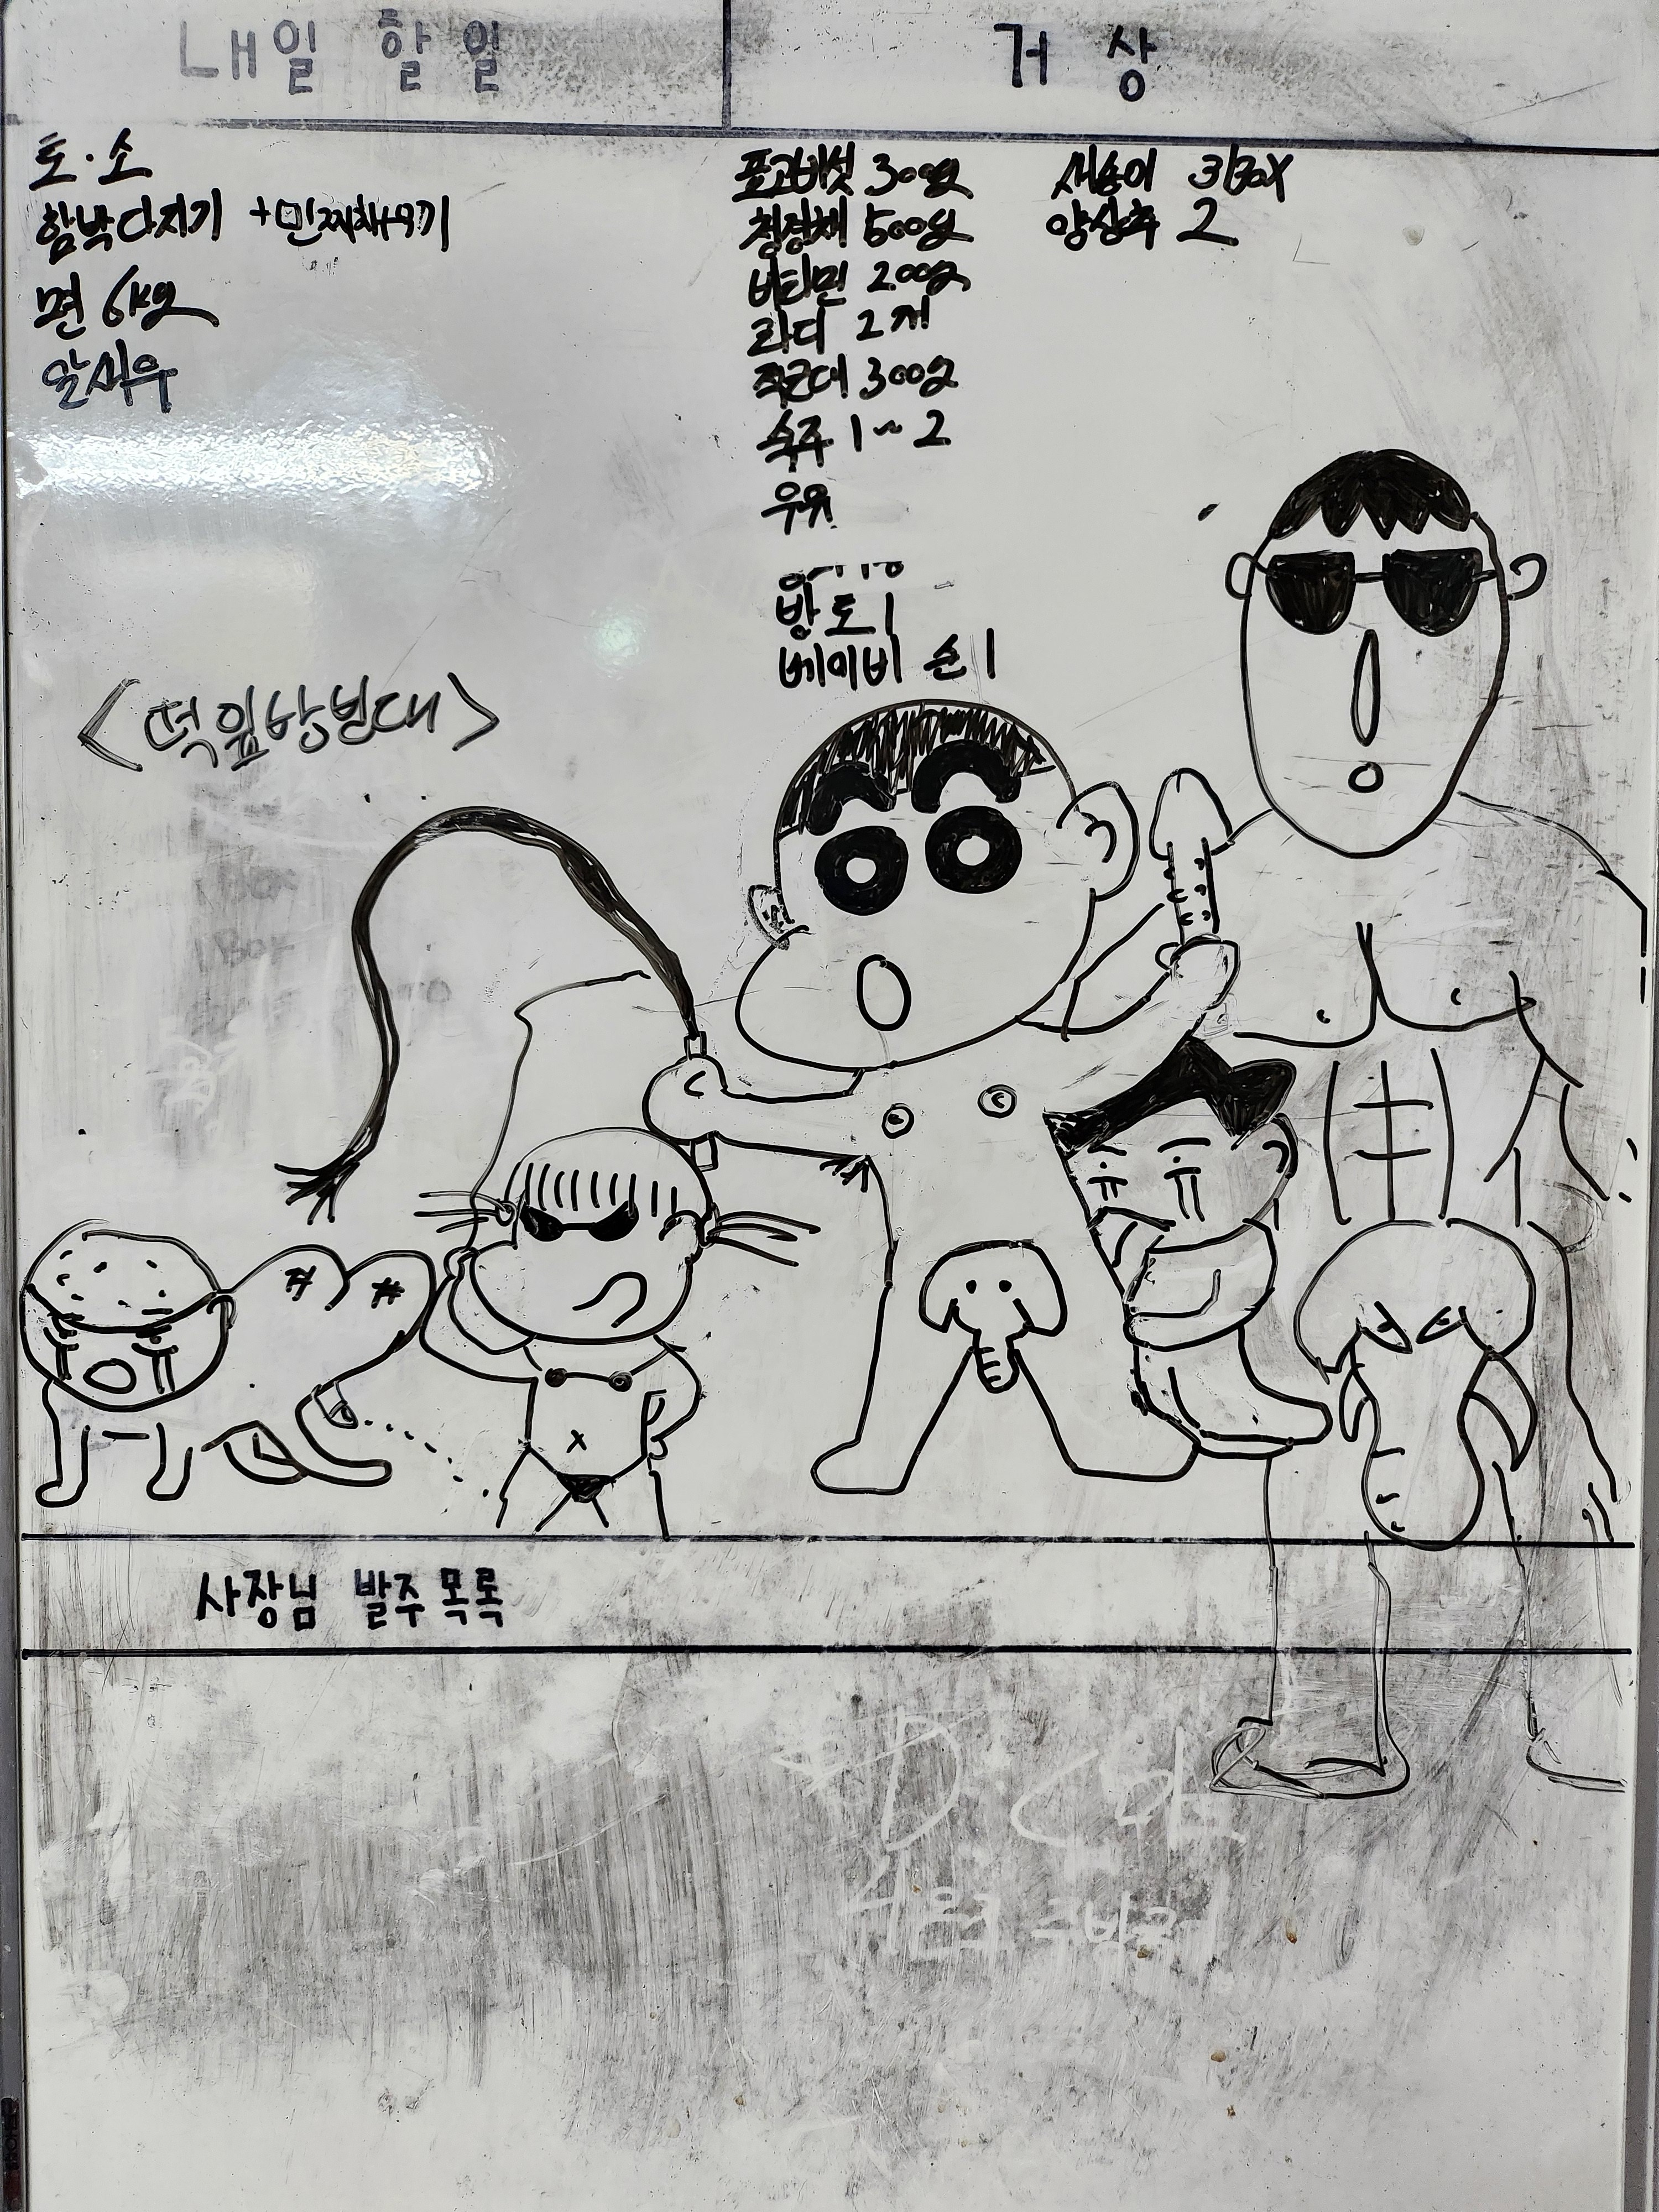 내일 할 일
거상
토·소
함박다지기 +민찌
면 6kg
알새우
표고버섯 300g
청경채 500g
비타민 200g
라디 2개
적근대 300g
숙주 1~2
우유
방토 1
베이비 순 1
새송이 3Box
양상추 2
<떡잎방범대>
사장님 발주 목록